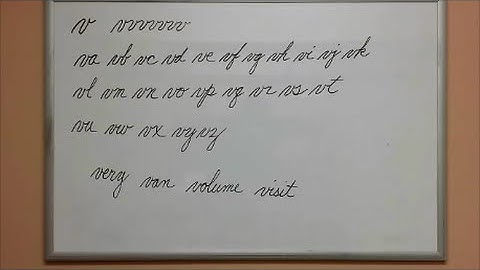 v vvvvvvv
va vb vc vd ve vf vg vh vi vj vk
vl vm vn vo vp vq vr vs vt
vu vw vx vy vz
very van volume visit